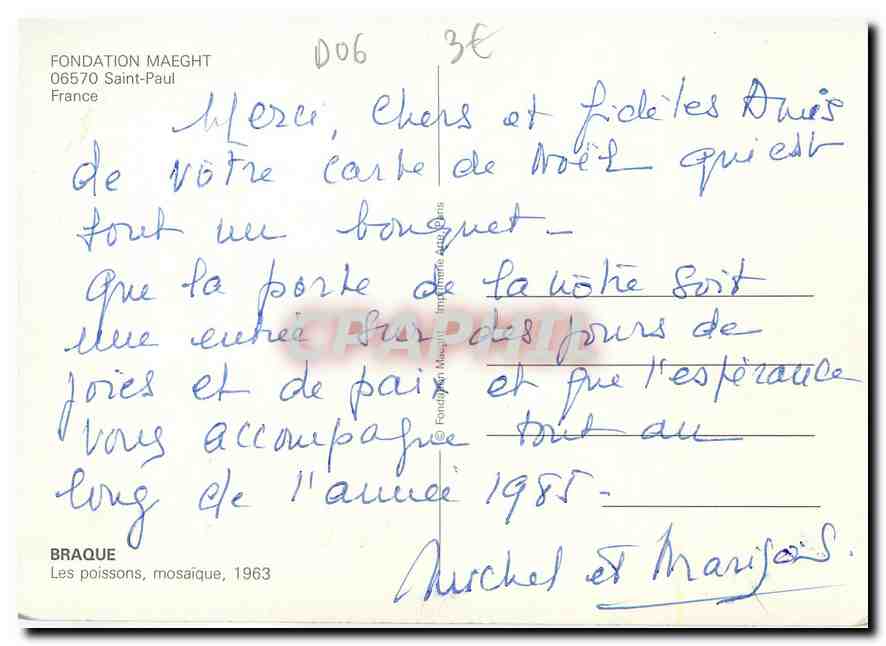 FONDATION MAEGHT
06570 Saint-Paul
France
D06
3€
Merci, chers et fidèles Amis
de vôtre carte de Noël qui est
tout un bouquet -
Que la porte de la nôtre soit
une entrée sur des jours de
joies et de paix et que l'espérance
vous accompagne tout au
long de l'année 1985 -
Michel et
BRAQUE
Les poissons, mosaïque, 1963
© Fondation Maeght - Imprimerie Arte Paris
CPAPHIL